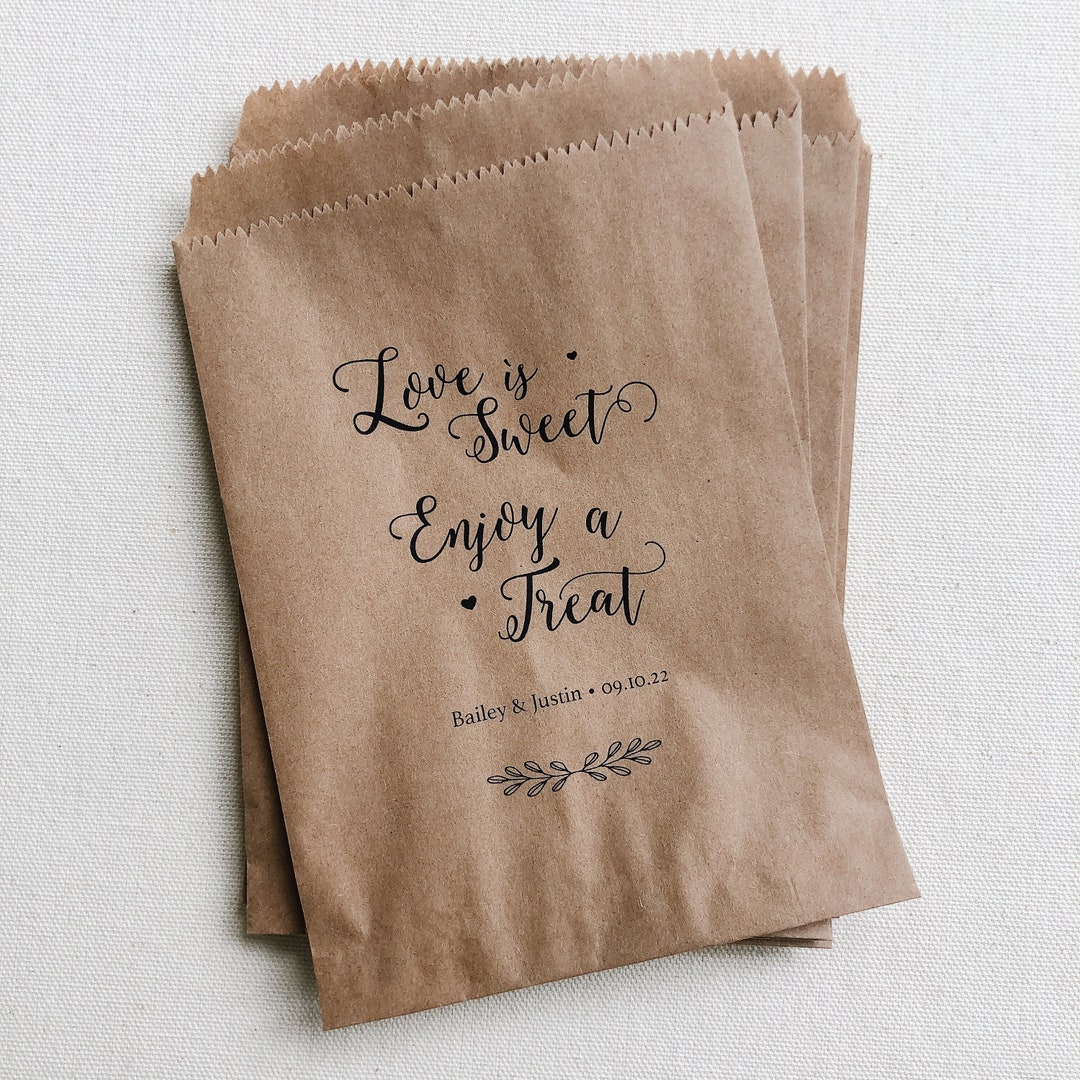 Love is
Sweet
Enjoy a
Treat
Bailey & Justin • 09.10.22